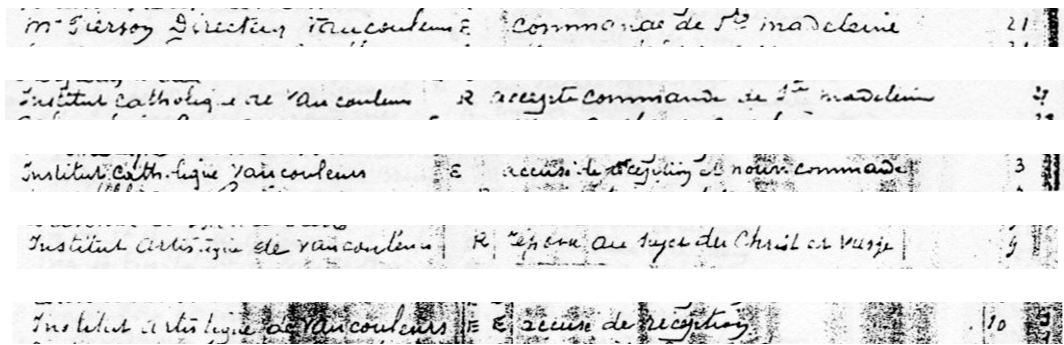 Mr Pierson Directeur Vaucouleurs E commande de Ste madeleine 21
Institut catholique de Vaucouleurs R accepte commande de Ste madeleine
Institut Catholique Vaucouleurs E accuse de réception et nouv. commande 3
Institut Artistique de Vaucouleurs R réponse au sujet du Christ et Vierge 9
Institut Artistique de Vaucouleurs E E accuse de réception 10